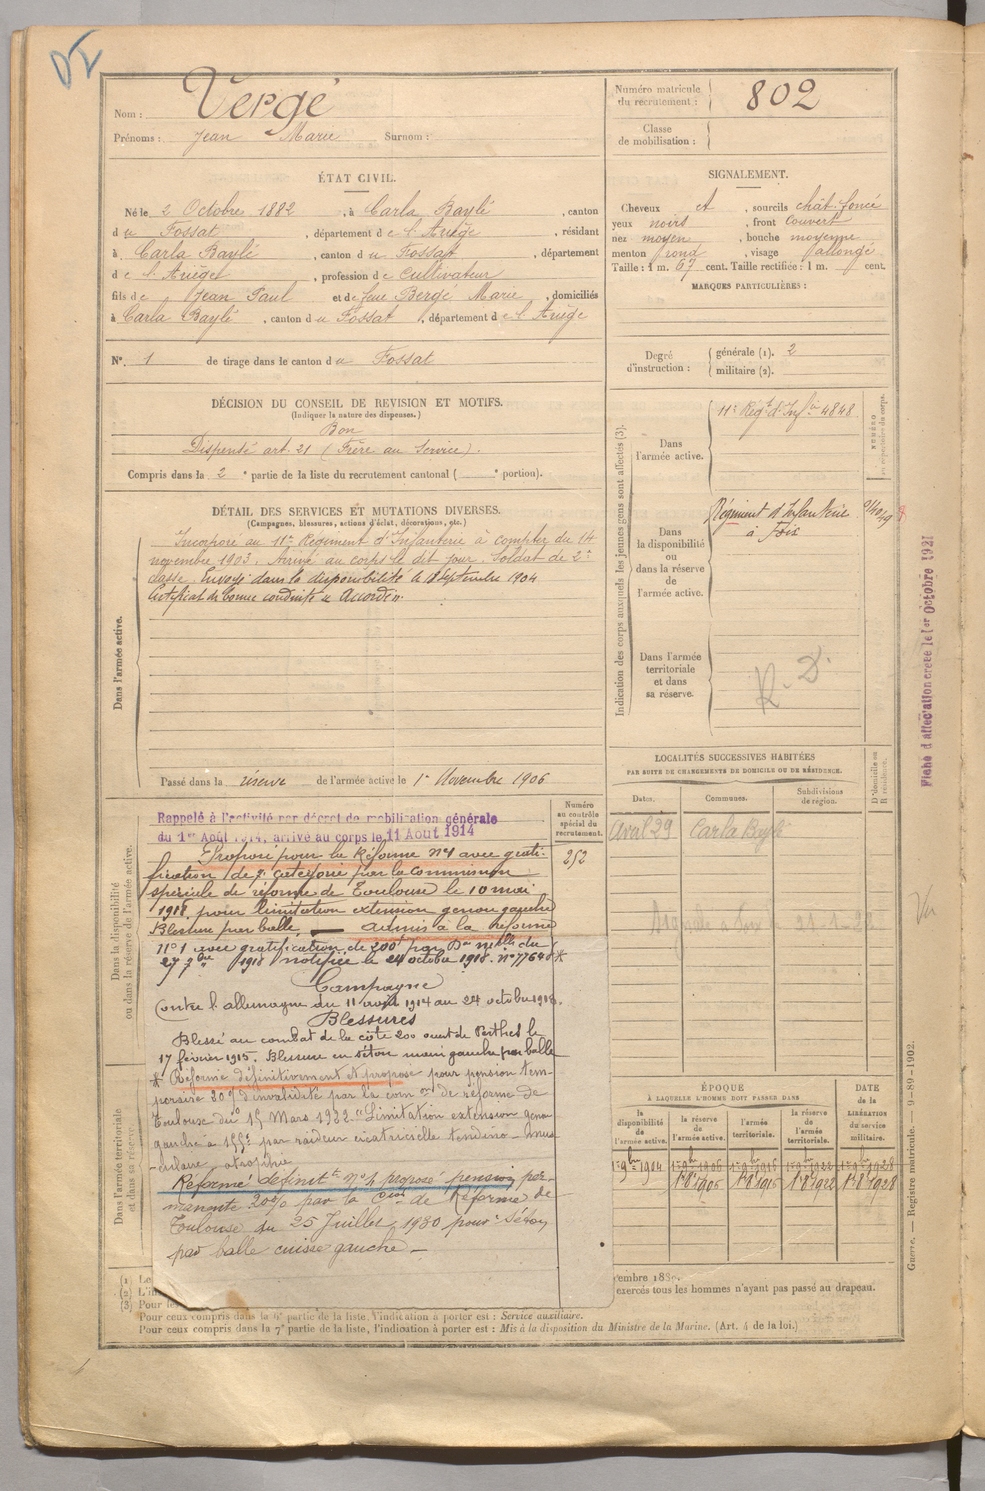 Vergé
Nom :
Prénoms : Jean Marie Surnom :
Numéro matricule du recrutement : 802
Classe de mobilisation :
ÉTAT CIVIL.
Né le 2 Octobre 1882, à Carla Baylé, canton
du Fossat, département de l'Ariège, résidant
à Carla Baylé, canton du Fossat, département
de l'Ariège, profession de Cultivateur
fils de Jean Paul et de feue Bergé Marie, domiciliés
à Carla Baylé, canton du Fossat, département de l'Ariège
N°. 1 de tirage dans le canton du Fossat
SIGNALEMENT.
Cheveux et, sourcils chât. foncé
yeux noirs, front Couvert
nez moyen, bouche moyenne
menton rond, visage allongé
Taille : 1 m. 67 cent. Taille rectifiée : 1 m. cent.
MARQUES PARTICULIÈRES :
Degré d'instruction : générale (1). 2
militaire (2).
DÉCISION DU CONSEIL DE REVISION ET MOTIFS.
(Indiquer la nature des dispenses.)
Bon
Dispensé art. 21 (Frère au Service).
Compris dans la 2e partie de la liste du recrutement cantonal ( e portion).
DÉTAIL DES SERVICES ET MUTATIONS DIVERSES.
(Campagnes, blessures, actions d'éclat, décorations, etc.)
Dans l'armée active.
Incorporé au 11e Régiment d'Infanterie à compter du 14
novembre 1903. Arrivé au corps le dit jour. Soldat de 2e
classe. Envoyé dans la disponibilité le septembre 1904
Certificat de bonne conduite "Accordé".
Passé dans la réserve de l'armée active le 1er Novembre 1906
Indication des corps auxquels les jeunes gens sont affectés (3).
NUMÉRO au répertoire du corps.
Dans l'armée active.
11e Régt d'Infie 4848
Dans la disponibilité ou dans la réserve de l'armée active.
Régiment d'Infanterie
à Foix
Dans l'armée territoriale et dans sa réserve.
R. D.
Fiche d'affectation créée le 1er Octobre 1921
LOCALITÉS SUCCESSIVES HABITÉES
PAR SUITE DE CHANGEMENTS DE DOMICILE OU DE RÉSIDENCE.
Dates. Communes. Subdivisions de région. D. domicile ou R. résidence.
Carla Baylé
Dans la disponibilité ou dans la réserve de l'armée active.
Numéro au contrôle spécial du recrutement.
252
Rappelé à l'activité par décret de mobilisation générale
du 1er Août 1914, arrivé au corps le 11 Août 1914
Proposé pour la Réforme n°1 avec grati-
fication de 7e catégorie par la commission
spéciale de réforme de Toulouse le 10 mai
1918 pour limitation extension genou gauche
Blessure par balle. — admis à la Réforme
n°1 avec gratification de 200f par Don melle du
27 7bre 1918 notifiée le 24 octobre 1918. n°77648 *
Campagne
Contre l'allemagne du 11 août 1914 au 24 octobre 1918.
Blessures
Blessé au combat de la côte 200 ouest de Perthes le
17 février 1915. Blessure en séton main gauche par balle
* Réformé définitivement et proposé pour pension tem-
poraire 20% d'invalidité par la com on de réforme de
Toulouse du 15 Mars 1922. "Limitation extension genou
gauche à 155° par raideur cicatricielle tendino-mus-
culaire, atrophie
Réformé définitt n°1 proposé pension per-
manente 20% par la Cion de Réforme de
Toulouse du 25 Juillet 1930 pour : séton
par balle cuisse gauche —
Dans l'armée territoriale et dans sa réserve.
ÉPOQUE
À LAQUELLE L'HOMME DOIT PASSER DANS
la disponibilité de l'armée active. la réserve de l'armée active. l'armée territoriale. la réserve de l'armée territoriale. DATE de la LIBÉRATION du service militaire.
1er 9bre 1904 1er 9bre 1906 1er 9bre 1916 1er 9bre 1922 1er 9bre 1928
1er 8e 1906 1er 8e 1916 1er 8e 1922 1er 8e 1928
(1) Le
(2) L'in
(3) Pour les
exercés tous les hommes n'ayant pas passé au drapeau.
Pour ceux compris dans la 6e partie de la liste, l'indication à porter est : Service auxiliaire.
Pour ceux compris dans la 7e partie de la liste, l'indication à porter est : Mis à la disposition du Ministre de la Marine. (Art. 4 de la loi.)
Guerre. — Registre matricule. — 9-89-1902.